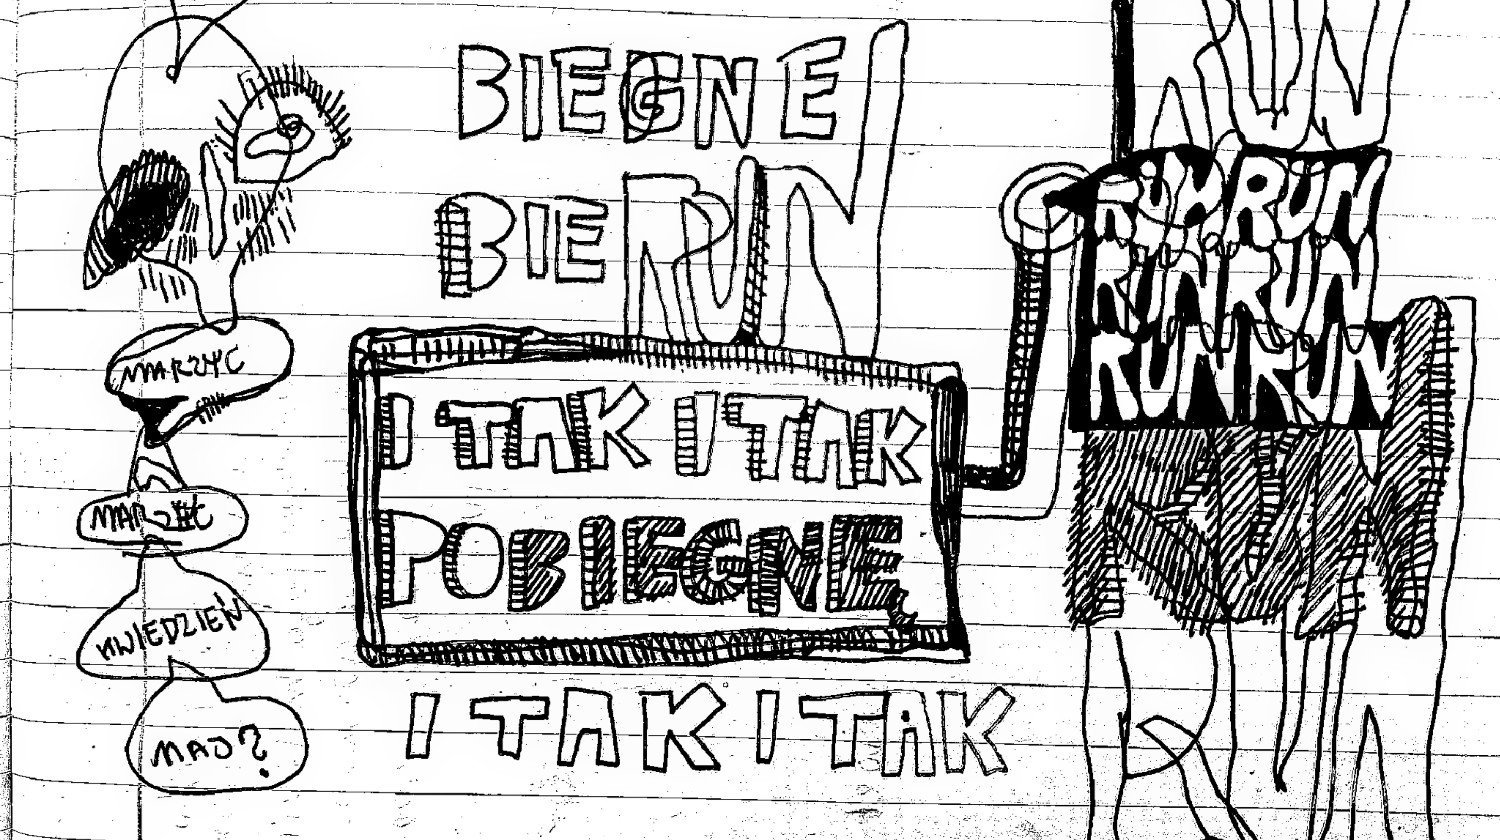 BIEGNE
BIE RUN
I TAK I TAK
POBIEGNĘ
I TAK I TAK
MARZYC
KWIEDZIEŃ
MAJ?
RUN RUN
RUN RUN
RUN RUN
RUN
RUN